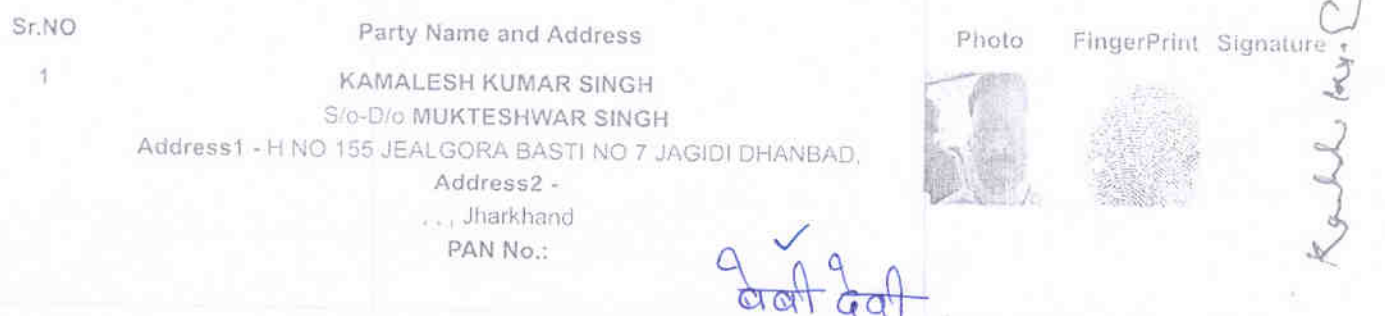 Sr.NO Party Name and Address Photo FingerPrint Signature
1 KAMALESH KUMAR SINGH
S/o-D/o MUKTESHWAR SINGH
Address1 - H NO 155 JEALGORA BASTI NO 7 JAGIDI DHANBAD,
Address2 -
. . , Jharkhand
PAN No.: